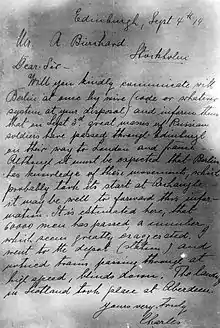 Edinburgh, Sept 4th 14
Mr. A Burchard
Stockholm
Dear Sir -
Will you kindly communicate with
Berlin at once by wire (code or whatever
system at your disposal) and inform them
that on Sept 3rd great masses of Russian
soldiers have passed through Edinburgh
on their way to London and France.
Although it must be expected that Berlin
has knowledge of these movements, which
probably took its start at Archangel,
it may be well to forward this infor-
mation. It is estimated here, that
60000 men has passed, a number
which seems greatly exaggerated. I
went to the depot (station) and
noticed trains passing through at
high speed, blinds down. The landing
in Scotland took place at Aberdeen.
Yours very truly
Charles